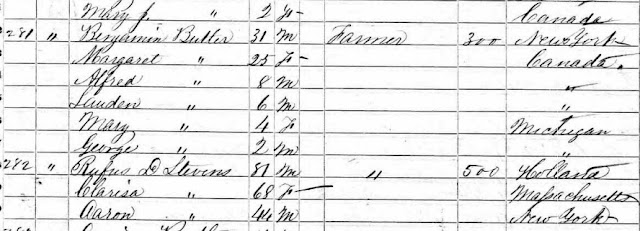 Mary J. " 2 F Canada
281 " Benjamin Butler 31 M Farmer 300 New York
Margaret " 25 F Canada.
Alfred " 8 M "
Linden " 6 M "
Mary " 4 F Michigan
George " 2 M "
282 " Rufus D Stevins 81 M " 500 Holland
Clarisa " 68 F Massachusetts
Aaron " 44 M New York